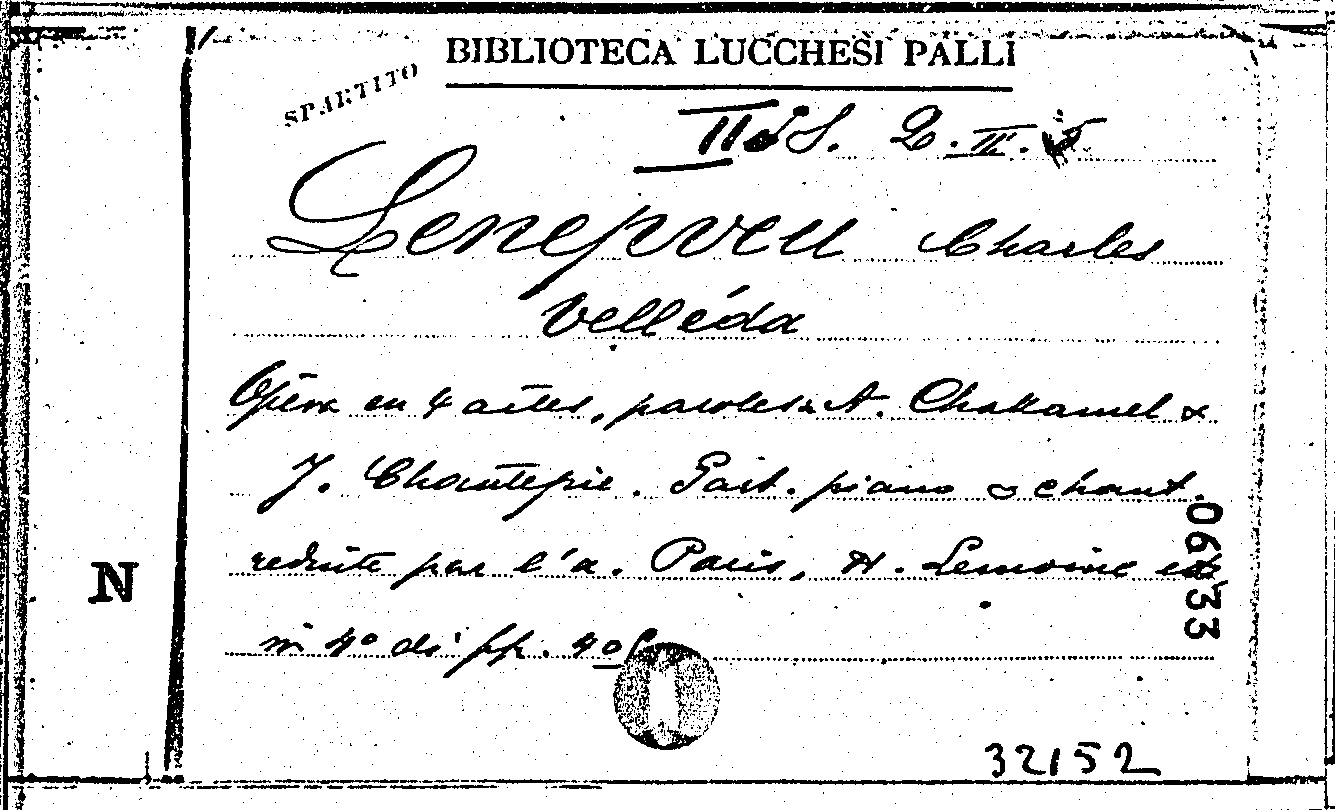 BIBLIOTECA LUCCHESI PALLI
SPARTITO
S. 2. III.
Lenepveu Charles
Velléda
Opéra en 4 actes, paroles A. Challamel &
J. Chantepie. Part. piano & chant.
reduite par l'a. Paris, H. Lemoine ed
in 4° di pp.
N
06233
32152